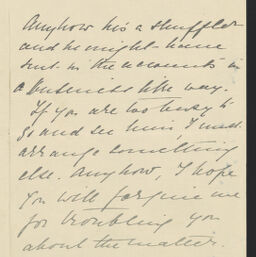 Anyhow he's a shuffler
and he might have
sent in the accounts in
a business like way.
If you are too busy to
go and see him, I must
arrange something
else. Anyhow, I hope
you will forgive me
for troubling you
about the matter.